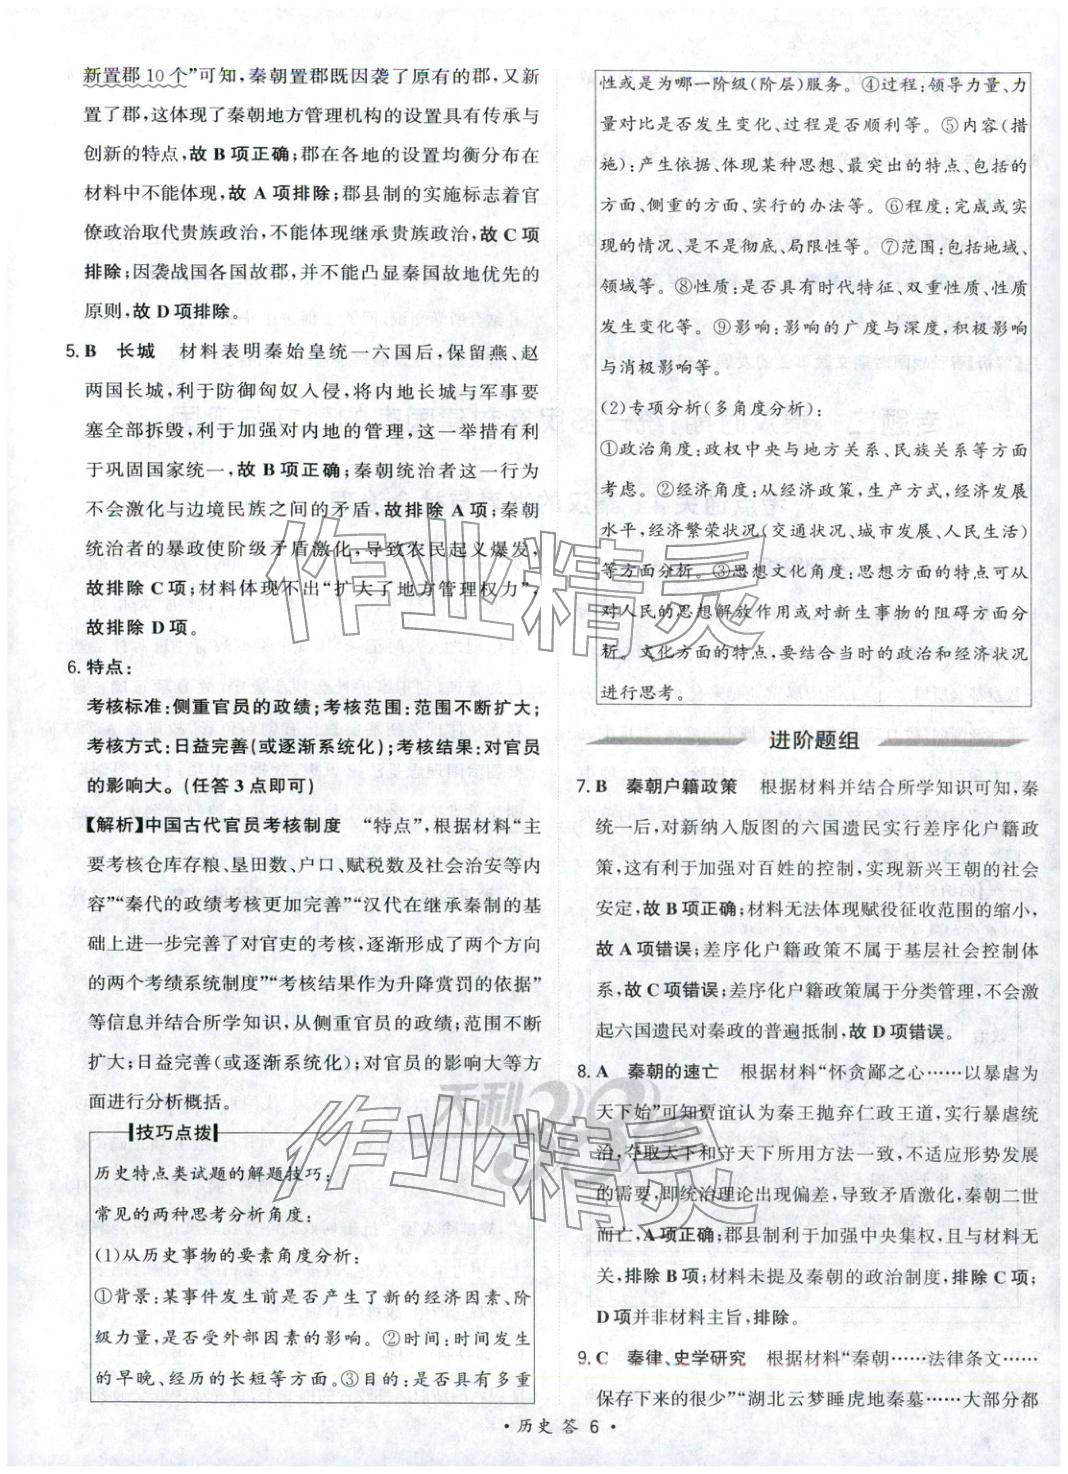 新置郡 10 个”可知，秦朝置郡既因袭了原有的郡，又新
置了郡，这体现了秦朝地方管理机构的设置具有传承与
创新的特点，故 B 项正确；郡在各地的设置均衡分布在
材料中不能体现，故 A 项排除；郡县制的实施标志着官
僚政治取代贵族政治，不能体现继承贵族政治，故 C 项
排除；因袭战国各国故郡，并不能凸显秦国故地优先的
原则，故 D 项排除。
5. B 长城 材料表明秦始皇统一六国后，保留燕、赵
两国长城，利于防御匈奴入侵，将内地长城与军事要
塞全部拆毁，利于加强对内地的管理，这一举措有利
于巩固国家统一，故 B 项正确；秦朝统治者这一行为
不会激化与边境民族之间的矛盾，故排除 A 项；秦朝
统治者的暴政使阶级矛盾激化，导致农民起义爆发，
故排除 C 项；材料体现不出“扩大了地方管理权力”，
故排除 D 项。
6. 特点：
考核标准：侧重官员的政绩；考核范围：范围不断扩大；
考核方式：日益完善（或逐渐系统化）；考核结果：对官员
的影响大。（任答 3 点即可）
【解析】中国古代官员考核制度 “特点”，根据材料“主
要考核仓库存粮、垦田数、户口、赋税数及社会治安等内
容”“秦代的政绩考核更加完善”“汉代在继承秦制的基
础上进一步完善了对官吏的考核，逐渐形成了两个方向
的两个考绩系统制度”“考核结果作为升降赏罚的依据”
等信息并结合所学知识，从侧重官员的政绩；范围不断
扩大；日益完善（或逐渐系统化）；对官员的影响大等方
面进行分析概括。
技巧点拨
历史特点类试题的解题技巧：
常见的两种思考分析角度：
(1)从历史事物的要素角度分析：
①背景：某事件发生前是否产生了新的经济因素、阶
级力量，是否受外部因素的影响。②时间：时间发生
的早晚、经历的长短等方面。③目的：是否具有多重
性或是为哪一阶级（阶层）服务。④过程：领导力量、力
量对比是否发生变化、过程是否顺利等。⑤内容（措
施）：产生依据、体现某种思想、最突出的特点、包括的
方面、侧重的方面、实行的办法等。⑥程度：完成或实
现的情况、是不是彻底、局限性等。⑦范围：包括地域、
领域等。⑧性质：是否具有时代特征、双重性质、性质
发生变化等。⑨影响：影响的广度与深度，积极影响
与消极影响等。
(2)专项分析（多角度分析）：
①政治角度：政权中央与地方关系、民族关系等方面
考虑。②经济角度：从经济政策，生产方式，经济发展
水平，经济繁荣状况（交通状况、城市发展、人民生活）
等方面分析。③思想文化角度：思想方面的特点可从
对人民的思想解放作用或对新生事物的阻碍方面分
析。文化方面的特点，要结合当时的政治和经济状况
进行思考。
进阶题组
7. B 秦朝户籍政策 根据材料并结合所学知识可知，秦
统一后，对新纳入版图的六国遗民实行差序化户籍政
策，这有利于加强对百姓的控制，实现新兴王朝的社会
安定，故 B 项正确；材料无法体现赋役征收范围的缩小，
故 A 项错误；差序化户籍政策不属于基层社会控制体
系，故 C 项错误；差序化户籍政策属于分类管理，不会激
起六国遗民对秦政的普遍抵制，故 D 项错误。
8. A 秦朝的速亡 根据材料“怀贪鄙之心……以暴虐为
天下始”可知贾谊认为秦王抛弃仁政王道，实行暴虐统
治，夺取天下和守天下所用方法一致，不适应形势发展
的需要，即统治理论出现偏差，导致矛盾激化，秦朝二世
而亡，A 项正确；郡县制利于加强中央集权，且与材料无
关，排除 B 项；材料未提及秦朝的政治制度，排除 C 项；
D 项并非材料主旨，排除。
9. C 秦律、史学研究 根据材料“秦朝……法律条文……
保存下来的很少”“湖北云梦睡虎地秦墓……大部分都
· 历史 答 6 ·
作业精灵
天利38
作业精灵